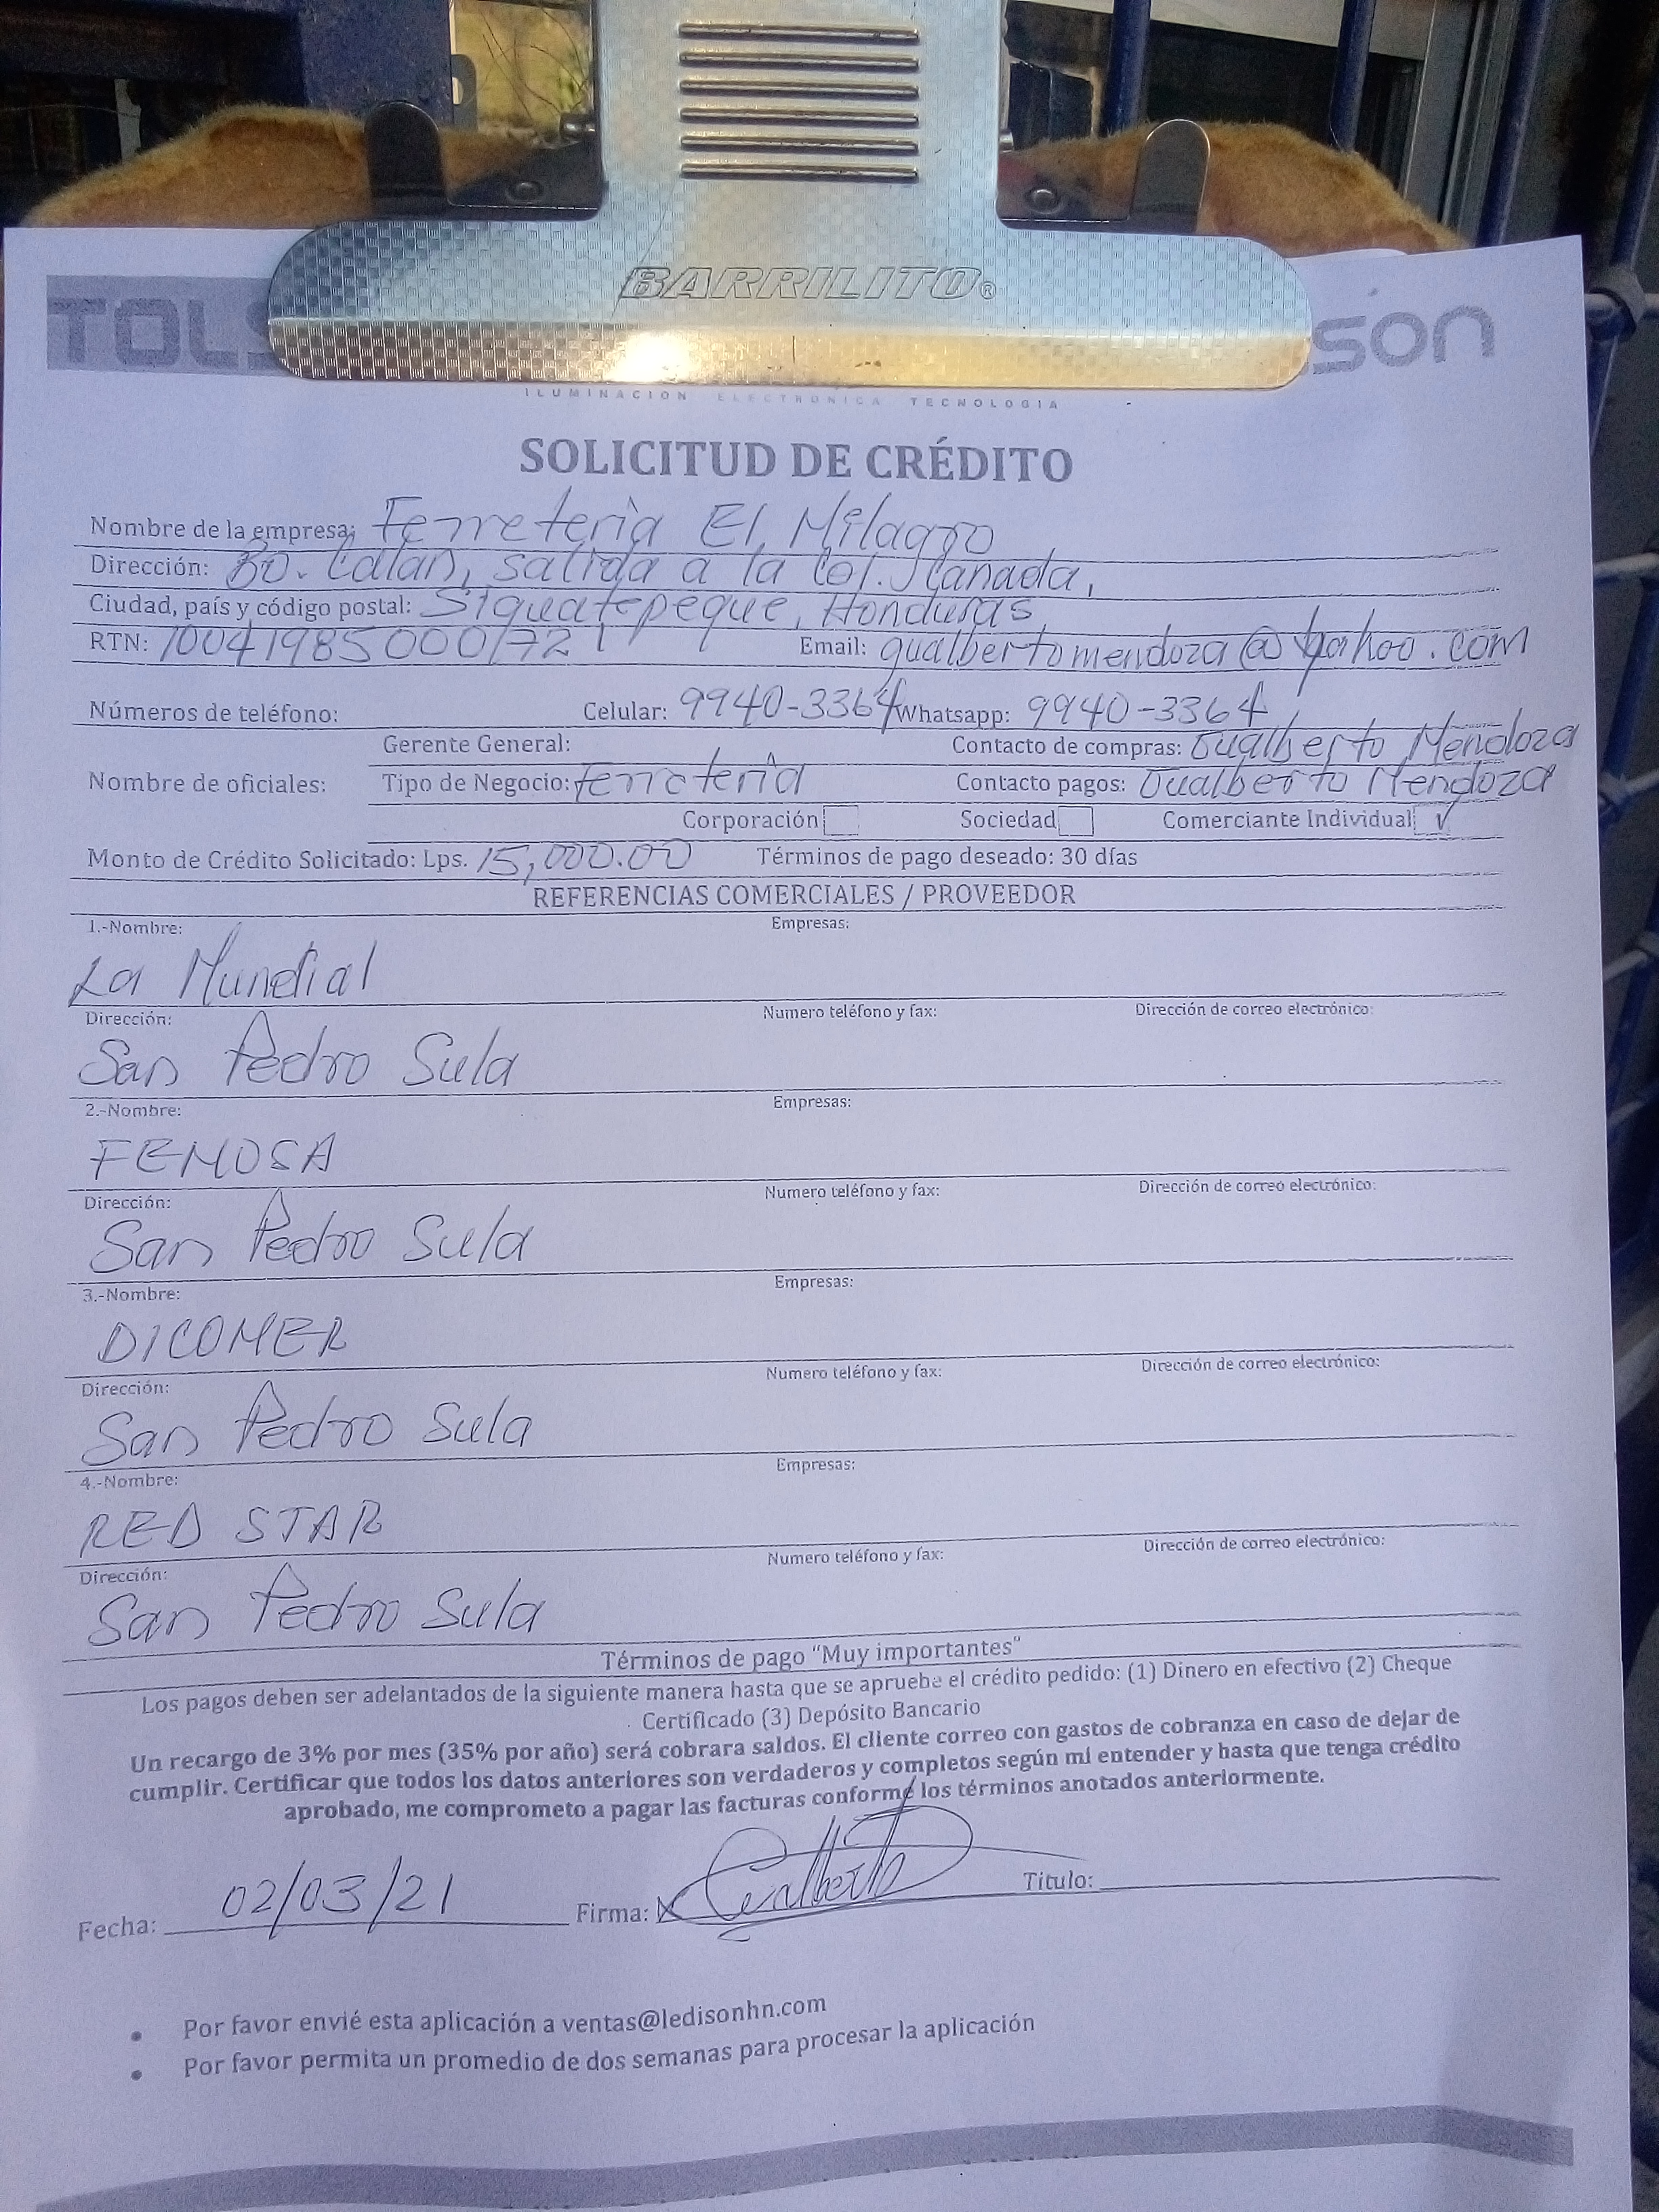 BARRILITO®
TOLS
SON
ILUMINACION ELECTRONICA TECNOLOGIA
SOLICITUD DE CRÉDITO
Nombre de la empresa: Ferreteria El Milagro
Dirección: Bo. Calan, salida a la Col. Canada,
Ciudad, país y código postal: Siguatepeque, Honduras
RTN: 10041985000172 Email: gualbertomendoza@yahoo.com
Números de teléfono: Celular: 9940-3364 Whatsapp: 9940-3364
Gerente General: Contacto de compras: Gualberto Mendoza
Nombre de oficiales: Tipo de Negocio: ferreteria Contacto pagos: Gualberto Mendoza
Corporación Sociedad Comerciante Individual ✓
Monto de Crédito Solicitado: Lps. 15,000.00 Términos de pago deseado: 30 días
REFERENCIAS COMERCIALES / PROVEEDOR
1.-Nombre: Empresas:
La Mundial
Dirección: Numero teléfono y fax: Dirección de correo electrónico:
San Pedro Sula
2.-Nombre: Empresas:
FEMOSA
Dirección: Numero teléfono y fax: Dirección de correo electrónico:
San Pedro Sula
3.-Nombre: Empresas:
DICOMER
Dirección: Numero teléfono y fax: Dirección de correo electrónico:
San Pedro Sula
4.-Nombre: Empresas:
RED STAR
Dirección: Numero teléfono y fax: Dirección de correo electrónico:
San Pedro Sula
Términos de pago "Muy importantes"
Los pagos deben ser adelantados de la siguiente manera hasta que se apruebe el crédito pedido: (1) Dinero en efectivo (2) Cheque
Certificado (3) Depósito Bancario
Un recargo de 3% por mes (35% por año) será cobrara saldos. El cliente correo con gastos de cobranza en caso de dejar de
cumplir. Certificar que todos los datos anteriores son verdaderos y completos según mi entender y hasta que tenga crédito
aprobado, me comprometo a pagar las facturas conforme los términos anotados anteriormente.
Fecha: 02/03/21 Firma: X Gualberto Titulo:
• Por favor envié esta aplicación a ventas@ledisonhn.com
• Por favor permita un promedio de dos semanas para procesar la aplicación